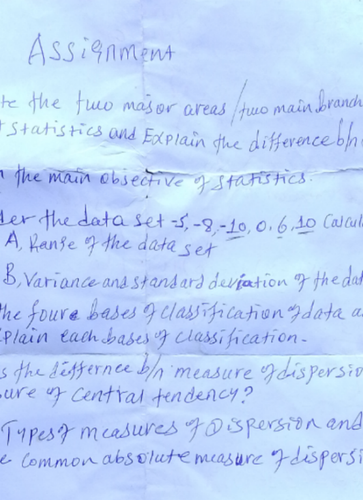 Assignment
te the two major areas / two main branch
f statistics and Explain the difference b/n
the main objective of statistics.
der the data set -5, -8, -10, 0, 6, 10 Calcul
A, Range of the data set
B, Variance and standard deviation of the dat
the foure bases of classification of data a
plain each bases of classification.
s the differnce b/n measure of dispersio
ure of Central tendency?
Types of measures of Dispersion and
e common absolute measure of dispersi